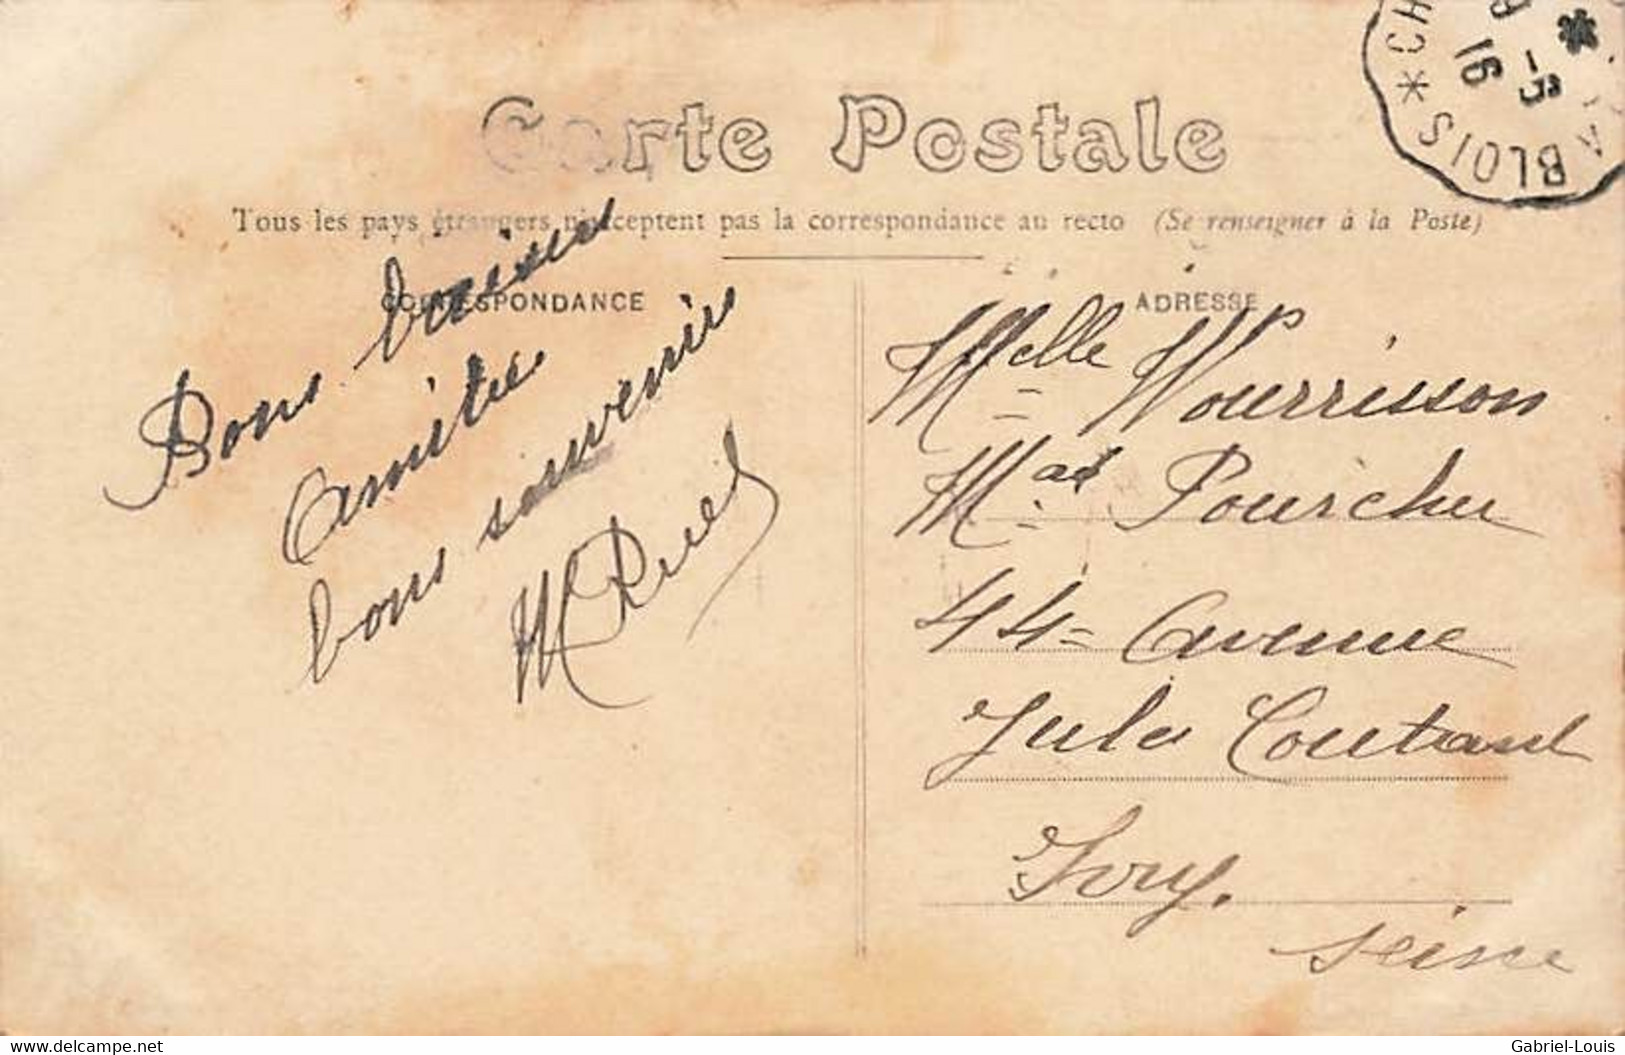 Carte Postale
Tous les pays étrangers n'acceptent pas la correspondance au recto (Se renseigner à la Poste)
CORRESPONDANCE
Bons baisers
Amitiés
bons souvenirs
M
ADRESSE
Melle Nourrisson
Mad Pourcher
44 = Avenue
Jules Coutant
Ivry.
Seine
* CH
A BLOIS *
16
9-5
www.delcampe.net
Gabriel-Louis